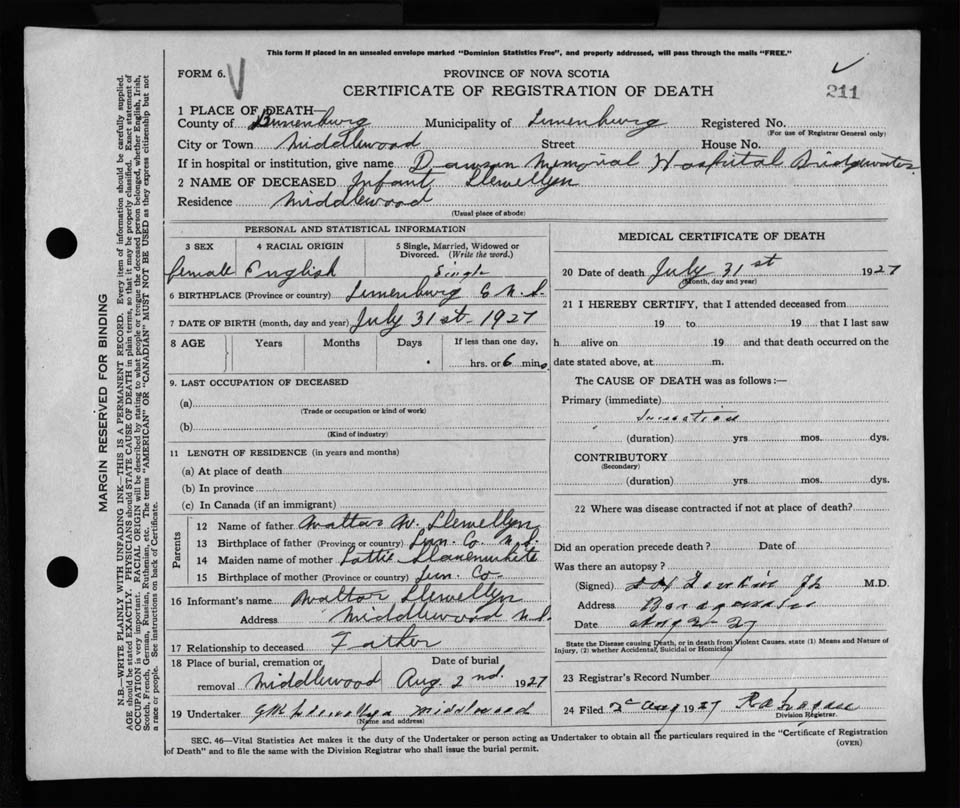 This form if placed in an unsealed envelope marked "Dominion Statistics Free", and properly addressed, will pass through the mails "FREE."
FORM 6.
PROVINCE OF NOVA SCOTIA
CERTIFICATE OF REGISTRATION OF DEATH
211
1 PLACE OF DEATH—
County of Lunenburg Municipality of Lunenburg Registered No.
(For use of Registrar General only)
City or Town Middlewood Street House No.
If in hospital or institution, give name Dawson Memorial Hospital Bridgewater
2 NAME OF DECEASED Infant Llewellyn
Residence Middlewood
(Usual place of abode)
PERSONAL AND STATISTICAL INFORMATION
3 SEX 4 RACIAL ORIGIN 5 Single, Married, Widowed or Divorced. (Write the word.)
female English Single
6 BIRTHPLACE (Province or country) Lunenburg Co N.S.
7 DATE OF BIRTH (month, day and year) July 31st - 1927
8 AGE Years Months Days If less than one day,
hrs. or 6 min.
9. LAST OCCUPATION OF DECEASED
(a)
(Trade or occupation or kind of work)
(b)
(Kind of industry)
11 LENGTH OF RESIDENCE (in years and months)
(a) At place of death
(b) In province
(c) In Canada (if an immigrant)
Parents
12 Name of father Walter W. Llewellyn
13 Birthplace of father (Province or country) Lun. Co. N.S.
14 Maiden name of mother Lottie
15 Birthplace of mother (Province or country) Lun. Co.
16 Informant's name Walter Llewellyn
Address Middlewood N.S.
17 Relationship to deceased Father
18 Place of burial, cremation or removal Middlewood
Date of burial Aug. 2nd. 1927
19 Undertaker Middlewood
(Name and address)
MEDICAL CERTIFICATE OF DEATH
20 Date of death July 31st 1927
(Month, day and year)
21 I HEREBY CERTIFY, that I attended deceased from
19 to 19 that I last saw
h alive on 19 and that death occurred on the
date stated above, at m.
The CAUSE OF DEATH was as follows:—
Primary (immediate)
(duration) yrs mos. dys.
CONTRIBUTORY
(Secondary)
(duration) yrs. mos. dys.
22 Where was disease contracted if not at place of death?
Did an operation precede death? Date of
Was there an autopsy?
(Signed) M.D.
Address Bridgewater
Date Aug 2-27
State the Disease causing Death, or in death from Violent Causes, state (1) Means and Nature of
Injury, (2) whether Accidental, Suicidal or Homicidal
23 Registrar's Record Number
24 Filed Aug 1927
Division Registrar.
SEC. 46—Vital Statistics Act makes it the duty of the Undertaker or person acting as Undertaker to obtain all the particulars required in the "Certificate of Registration
of Death" and to file the same with the Division Registrar who shall issue the burial permit.
(OVER)
MARGIN RESERVED FOR BINDING
N.B.—WRITE PLAINLY WITH UNFADING INK—THIS IS A PERMANENT RECORD. Every item of information should be carefully supplied.
AGE should be stated EXACTLY. PHYSICIANS should STATE CAUSE OF DEATH in plain terms, so that it may be properly classified. Exact statement of
OCCUPATION is very important. RACIAL ORIGIN will be described by stating to what people or tongue the deceased person belonged, whether English, Irish,
Scotch, French, German, Russian, Ruthenian, etc. The terms "AMERICAN" OR "CANADIAN" MUST NOT BE USED as they express citizenship but not
a race or people. See instructions on back of Certificate.